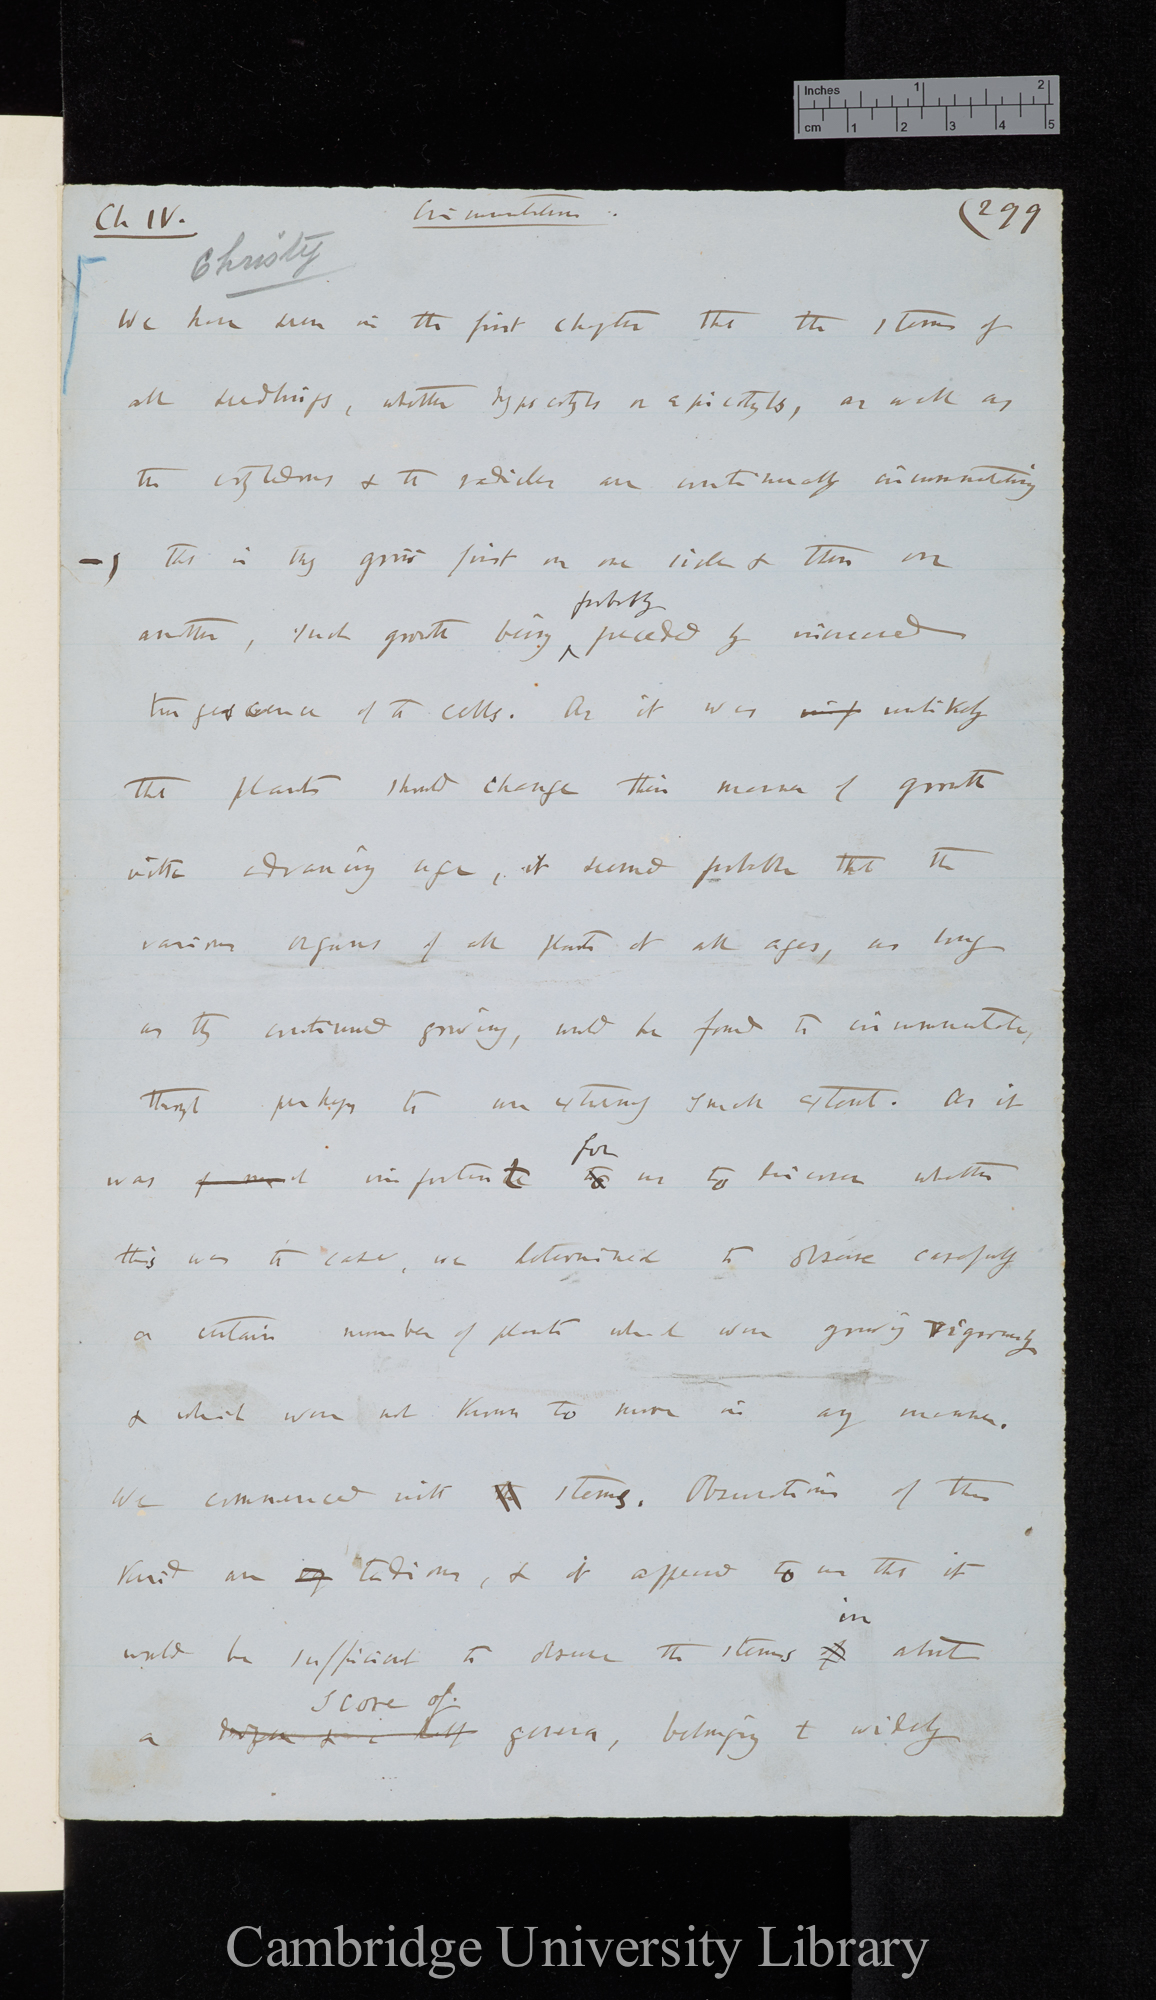 Inches 1 2
cm 1 2 3 4 5
Ch IV. Circumnutation. (299
Christy
We have seen in the first chapter that the stems of
all seedlings, whether hypocotyls or epicotyls, as well as
the cotyledons & the radicles are continually circumnutating
—, that is they grow first on one side & then on
probably
another, such growth being ‸ preceded by increased
turgescence of the cells. As it was unlikely
that plants should change their manner of growth
with advancing age, it seemed probable that the
various organs of all plants at all ages, as long
as they continued growing, would be found to circumnutate,
though perhaps to an extremely small extent. As it
for
was important to us to discover whether
this was the case, we determined to observe carefully
a certain number of plants which were growing vigorously
& which were not known to move in any manner.
We commenced with stems. Observations of this
kind are tedious, & it appeared to us that it
in
would be sufficient to observe the stems of about
score of
a dozen genera, belonging to widely
Cambridge University Library